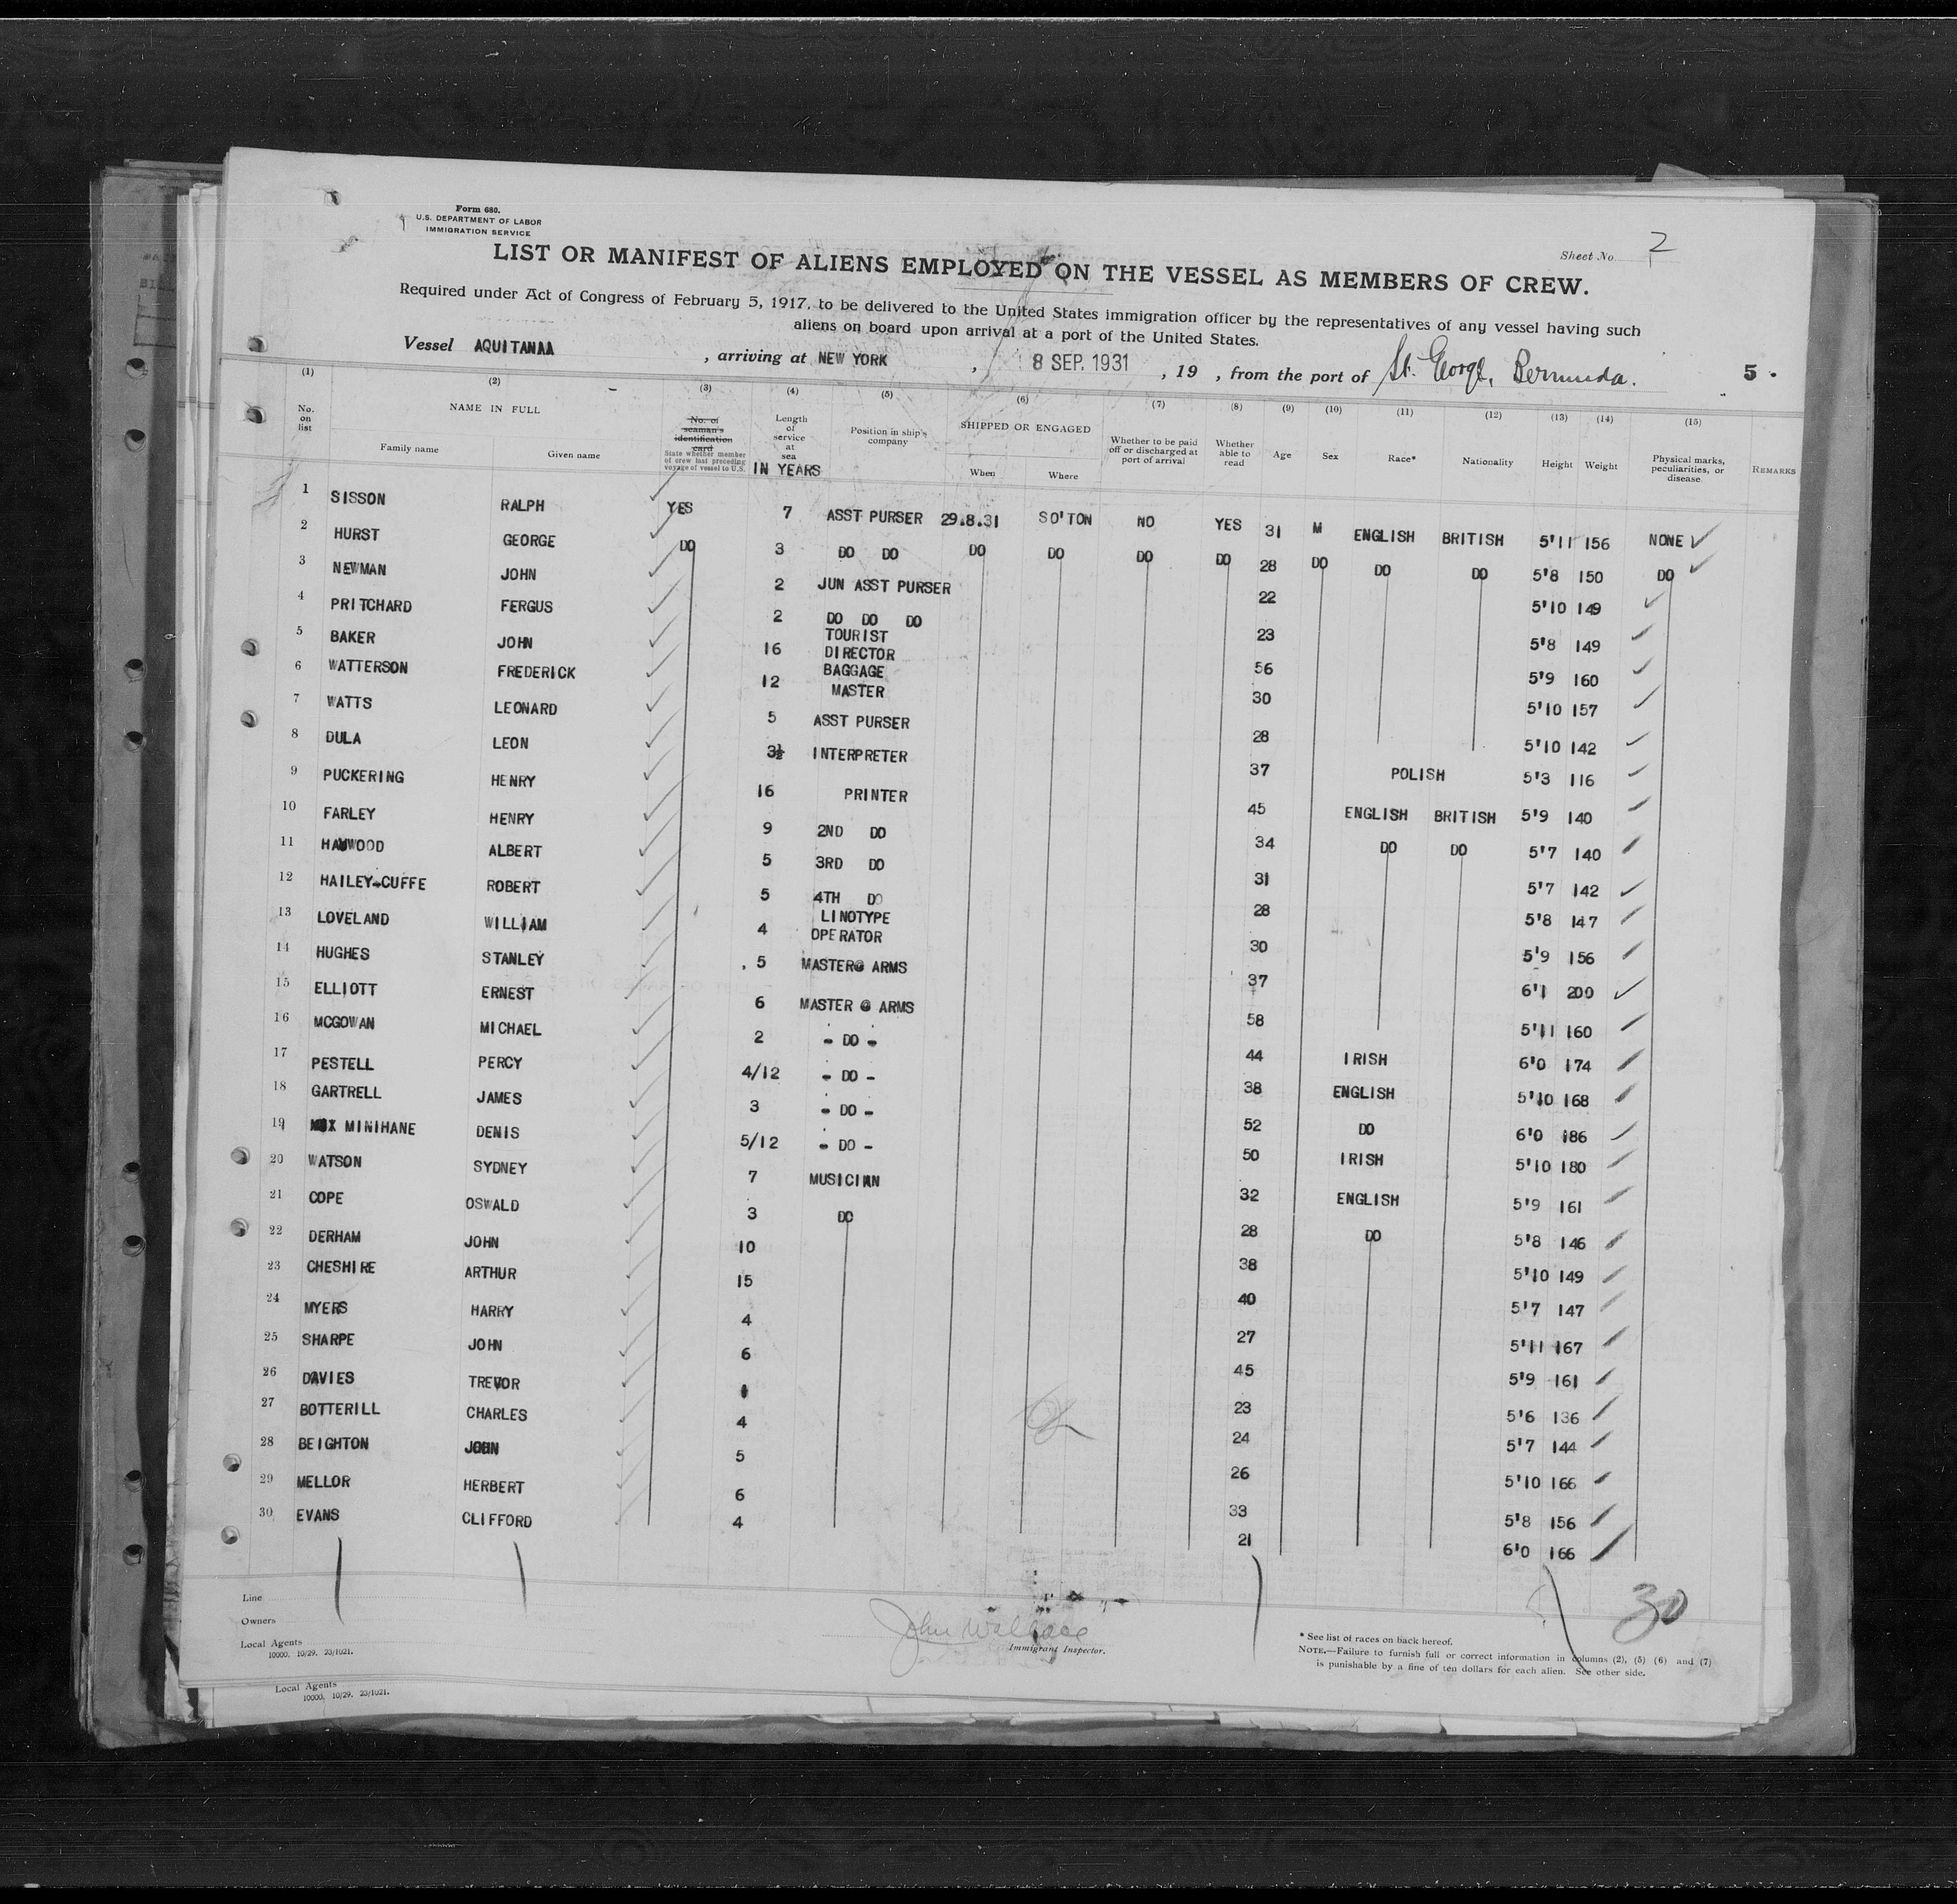 Form 680.
U.S. DEPARTMENT OF LABOR
IMMIGRATION SERVICE
Sheet No. 2
LIST OR MANIFEST OF ALIENS EMPLOYED ON THE VESSEL AS MEMBERS OF CREW.
Required under Act of Congress of February 5, 1917, to be delivered to the United States immigration officer by the representatives of any vessel having such
aliens on board upon arrival at a port of the United States.
Vessel AQUITANAA , arriving at NEW YORK , 8 SEP. 1931 , 19 , from the port of St. George, Bermuda. 5.
(1) (2) (3) (4) (5) (6) (7) (8) (9) (10) (11) (12) (13) (14) (15)
No. on list NAME IN FULL Family name Given name No. of seaman's identification card State whether member of crew last preceding voyage of vessel to U.S. Length of service at sea IN YEARS Position in ship's company SHIPPED OR ENGAGED When Where Whether to be paid off or discharged at port of arrival Whether able to read Age Sex Race* Nationality Height Weight Physical marks, peculiarities, or disease. REMARKS
1 SISSON RALPH YES 7 ASST PURSER 29.8.31 SO'TON NO YES 31 M ENGLISH BRITISH 5'11 156 NONE
2 HURST GEORGE DO 3 DO DO DO DO DO DO 28 DO DO DO 5'8 150 DO
3 NEWMAN JOHN 2 JUN ASST PURSER 22 5'10 149
4 PRITCHARD FERGUS 2 DO DO DO 23 5'8 149
5 BAKER JOHN 16 TOURIST DIRECTOR 56 5'9 160
6 WATTERSON FREDERICK 12 BAGGAGE MASTER 30 5'10 157
7 WATTS LEONARD 5 ASST PURSER 28 5'10 142
8 DULA LEON 3½ INTERPRETER 37 POLISH 5'3 116
9 PUCKERING HENRY 16 PRINTER 45 ENGLISH BRITISH 5'9 140
10 FARLEY HENRY 9 2ND DO 34 DO DO 5'7 140
11 HAYWOOD ALBERT 5 3RD DO 31 5'7 142
12 HAILEY-CUFFE ROBERT 5 4TH DO 28 5'8 147
13 LOVELAND WILLIAM 4 LINOTYPE OPERATOR 30 5'9 156
14 HUGHES STANLEY 5 MASTER@ ARMS 37 6'1 200
15 ELLIOTT ERNEST 6 MASTER @ ARMS 58 5'11 160
16 MCGOWAN MICHAEL 2 - DO - 44 IRISH 6'0 174
17 PESTELL PERCY 4/12 - DO - 38 ENGLISH 5'10 168
18 GARTRELL JAMES 3 - DO - 52 DO 6'0 186
19 MINIHANE DENIS 5/12 - DO - 50 IRISH 5'10 180
20 WATSON SYDNEY 7 MUSICIAN 32 ENGLISH 5'9 161
21 COPE OSWALD 3 DO 28 DO 5'8 146
22 DERHAM JOHN 10 38 5'10 149
23 CHESHIRE ARTHUR 15 40 5'7 147
24 MYERS HARRY 4 27 5'11 167
25 SHARPE JOHN 6 45 5'9 161
26 DAVIES TREVOR 23 5'6 136
27 BOTTERILL CHARLES 4 24 5'7 144
28 BEIGHTON JOHN 5 26 5'10 166
29 MELLOR HERBERT 6 33 5'8 156
30 EVANS CLIFFORD 4 21 6'0 166
30
Line
Owners
Local Agents
10000, 10/29. 23/1021.
John Wallace
Immigrant Inspector.
* See list of races on back hereof.
NOTE.—Failure to furnish full or correct information in columns (2), (5) (6) and (7)
is punishable by a fine of ten dollars for each alien. See other side.
Local Agents
10000, 10/29. 23/1021.